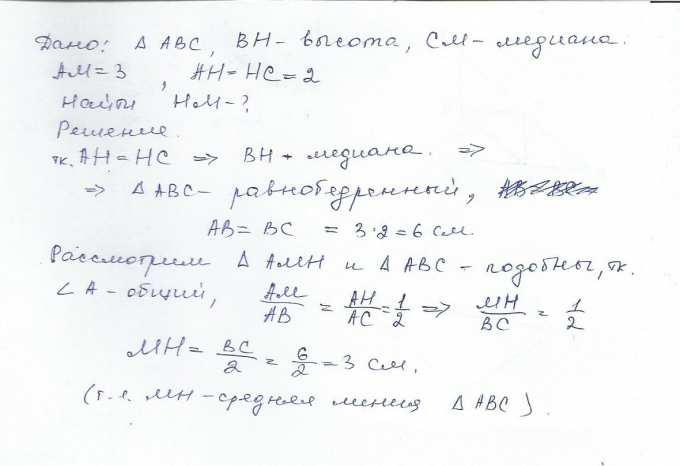 Дано: Δ ABC, BH - высота, CM - медиана.
AM = 3 , AH = HC = 2
Найти HM - ?
Решение.
тк. AH = HC => BH - медиана. =>
=> Δ ABC - равнобедренный,
AB = BC = 3·2 = 6 см.
Рассмотрим Δ AMH и Δ ABC - подобны, тк.
∠ A - общий, AM/AB = AH/AC = 1/2 => MH/BC = 1/2
MH = BC/2 = 6/2 = 3 см.
(т.е. MH - средняя линия Δ ABC).